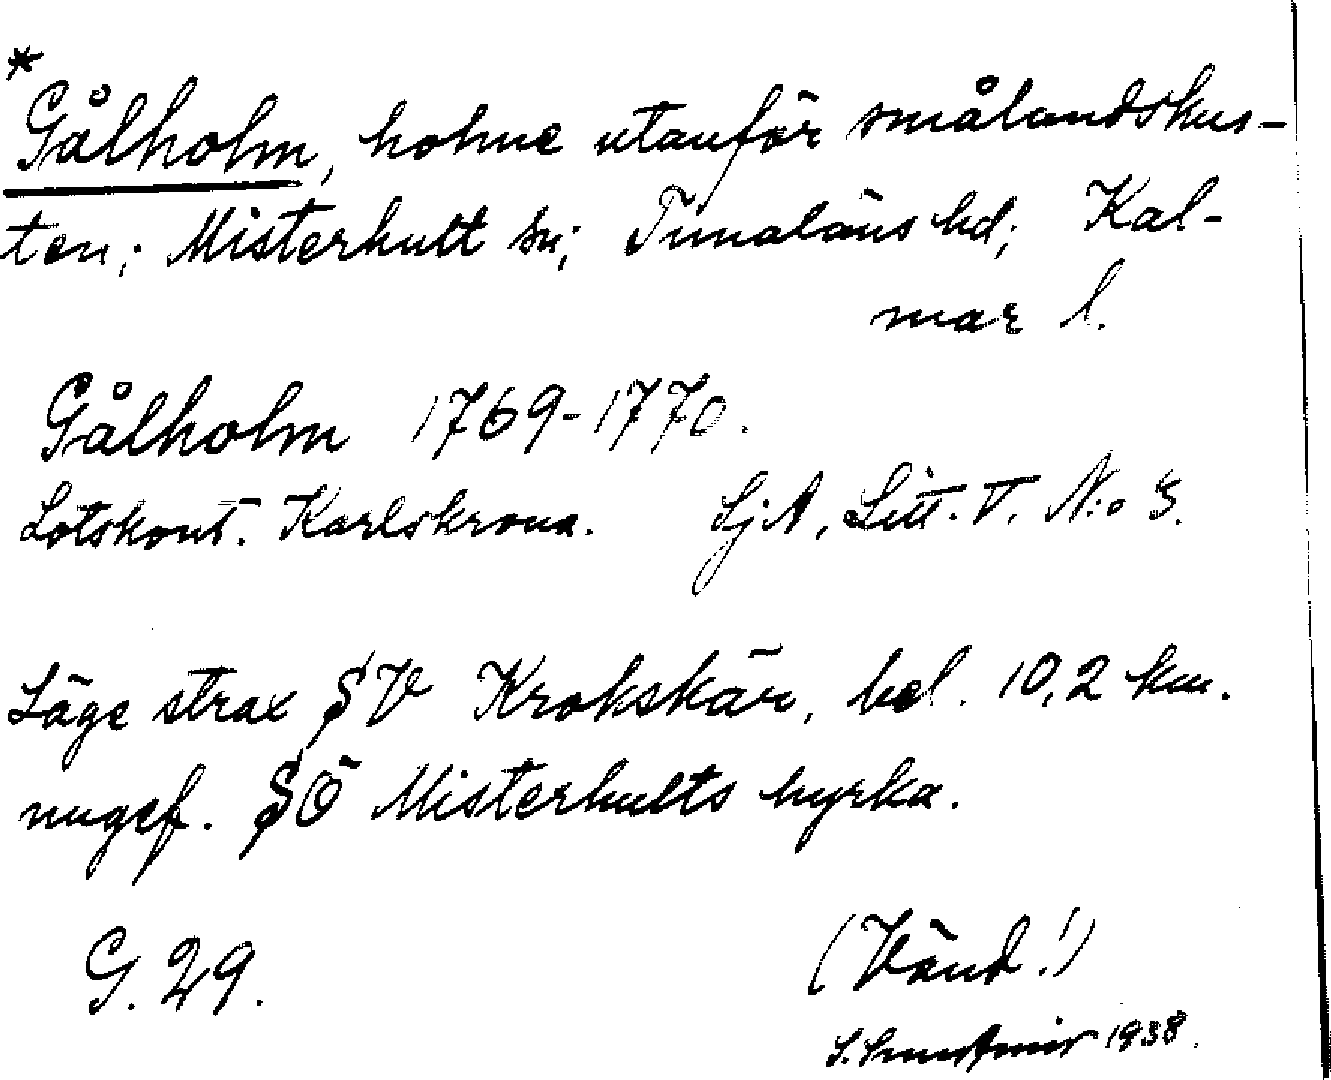 *
Gålholm, holme utanför smålandskus-
ten; Misterhult sn; Tunaläns hd; Kal-
mar l.
Gålholm 1769-1770.
Lotskont. Karlskrona. Sj.A, Litt. T. N:o 3.
Läge strax SV Krokskär, bel. 10,2 km.
nugef. SÖ Misterhults kyrka.
G. 29.
(Vänd!)
1938.